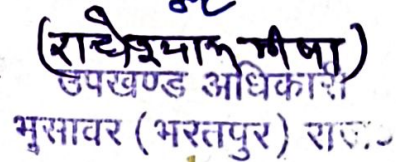 (राधेश्याम मीना)
उपखण्ड अधिकारी
भुसावर (भरतपुर) राज०